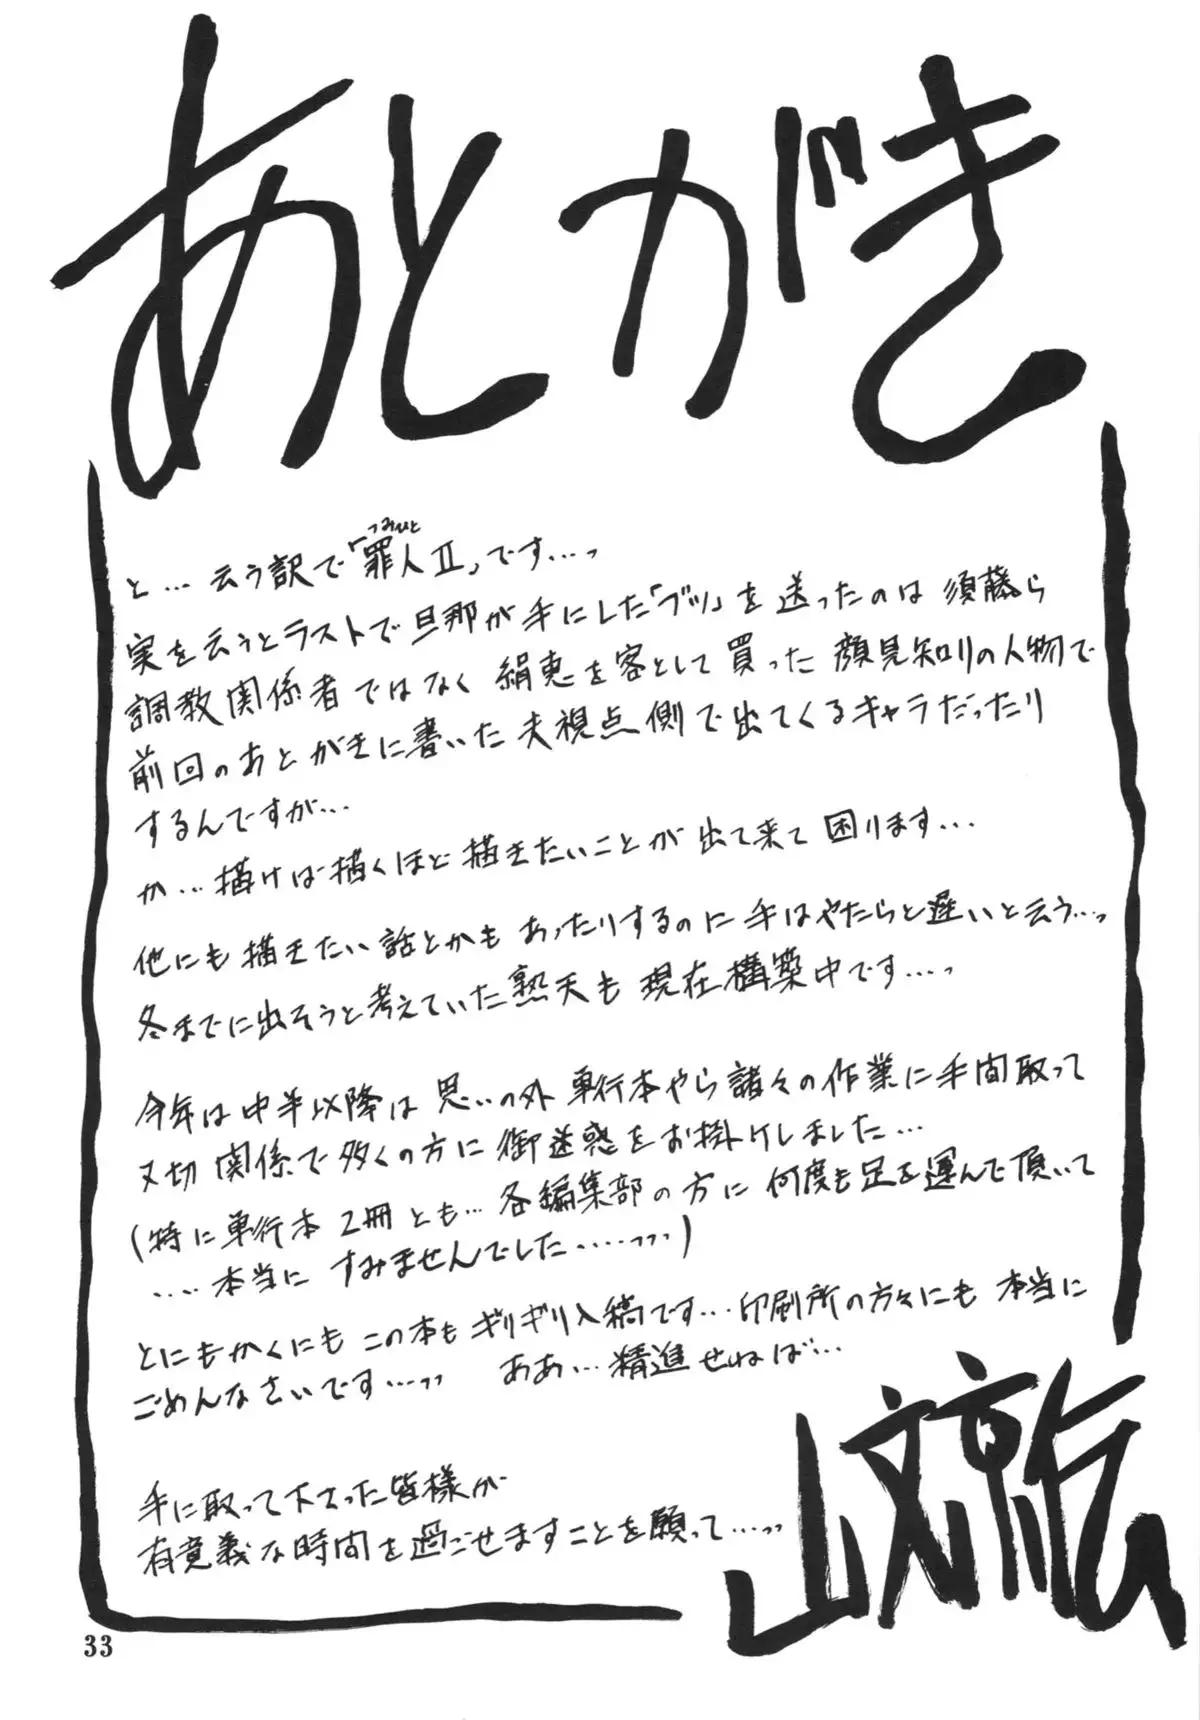 あとがき
と…云う訳で「罪人Ⅱ」です…っ
つみひと
実を云うとラストで旦那が手にした「ブツ」を送ったのは須藤ら
調教関係者ではなく絹恵を客として買った顔見知りの人物で
前回のあとがきに書いた夫視点側で出てくるキャラだったり
するんですが…
か…描けば描くほど描きたいことが出て来て困ります…
他にも描きたい話とかもあったりするのに手はやたらと遅いと云う…っ
冬までに出そうと考えていた熟天も現在構築中です…っ
今年は中半以降は思いの外単行本やら諸々の作業に手間取って
〆切関係で多くの方に御迷惑をお掛けしました…
(特に単行本2冊とも…各編集部の方に何度も足を運んで頂いて
‥‥本当にすみませんでした……っっっ)
とにもかくにもこの本もギリギリ入稿です…印刷所の方々にも本当に
ごめんなさいです…っっ ああ…精進せねば…
手に取って下さった皆様が
有意義な時間を過ごせますことを願って…っっ
山文京伝
33